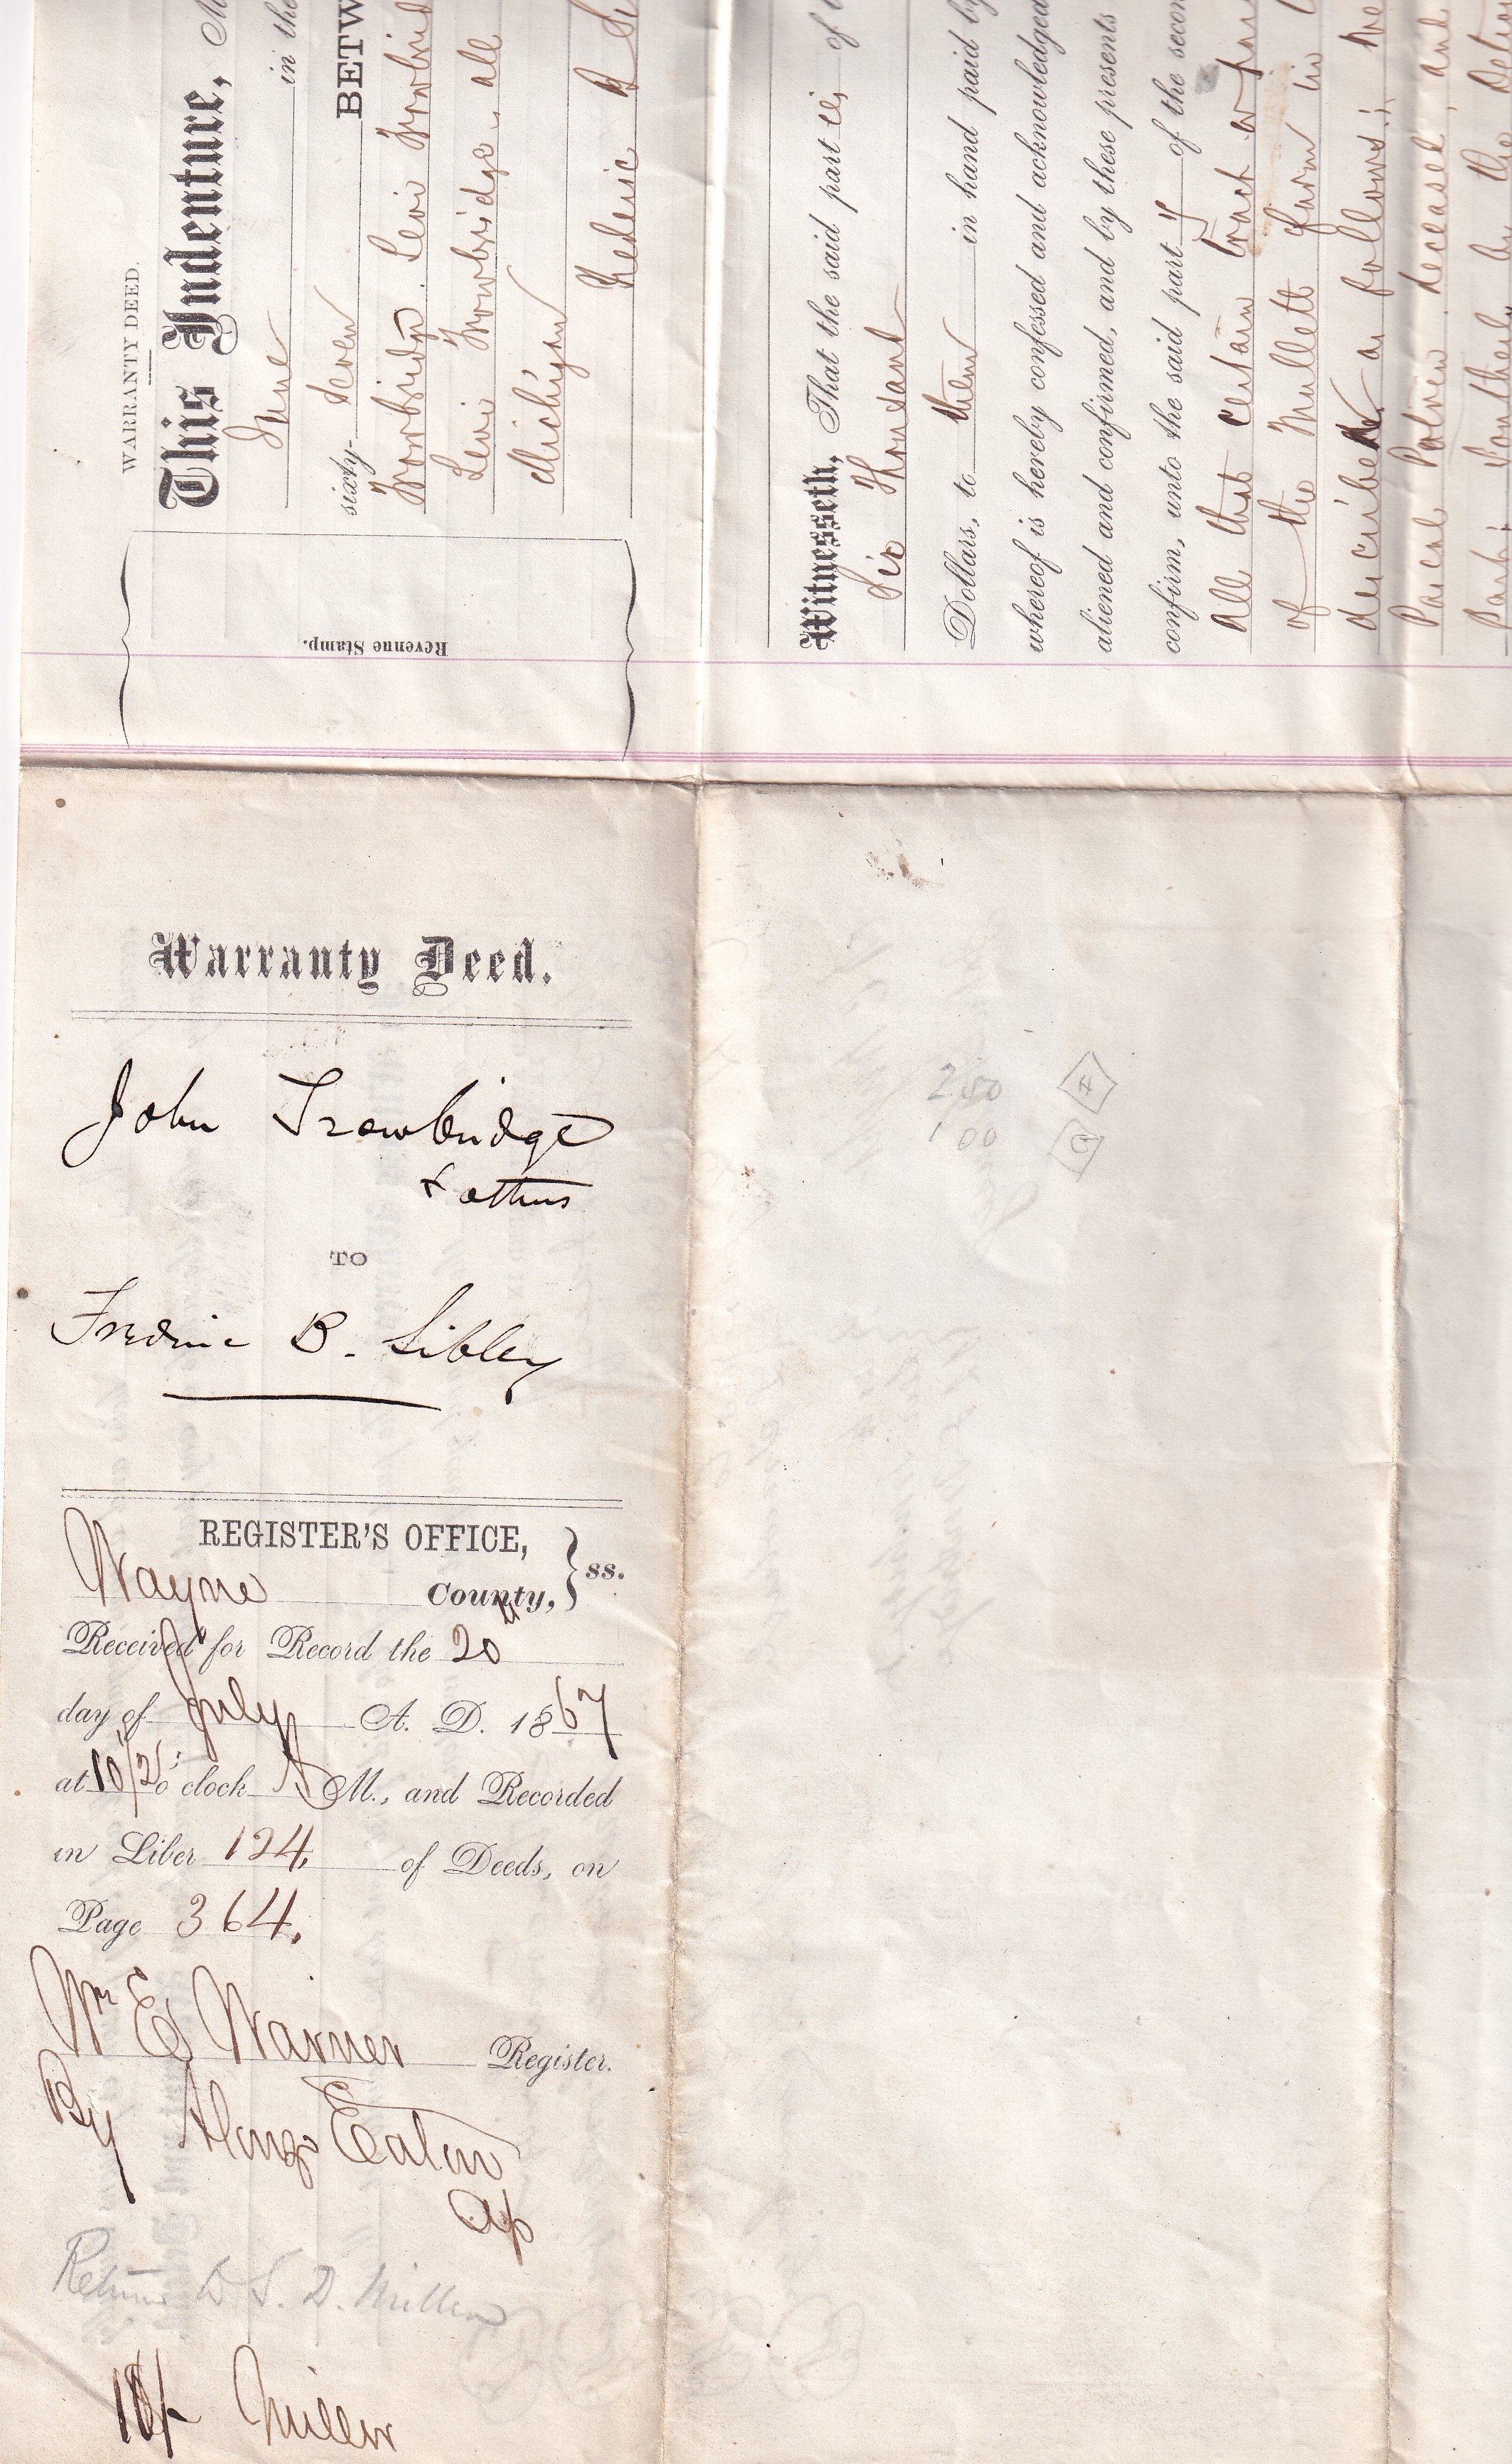 Warranty Deed.
John Trowbridge
& others
TO
Fredric B. Sibley
REGISTER'S OFFICE,
Wayne County, } ss.
Received for Record the 20th
day of July A. D. 1867
at 10/20 o'clock A M., and Recorded
in Liber 124, of Deeds, on
Page 364.
Wm E Warner Register.
By Alonzo Eaton
Return to S. D. Miller
10/- Miller
2.50
1 00
WARRANTY DEED.
This Indenture, M
June in the
sixty- seven BETW
Trowbridge, Levi Trowbrid
Levi Trowbridge, all
Michigan
Fredric B Si
Revenue Stamp.
Witnesseth, That the said part ies of t
Six Thousand
Dollars, to them in hand paid by
whereof is hereby confessed and acknowledged
aliened and confirmed, and by these presents
confirm, unto the said part y of the secon
All that certain tract or par
of the Mullett farm in
described as follows:
Pascal Potvin deceased, and